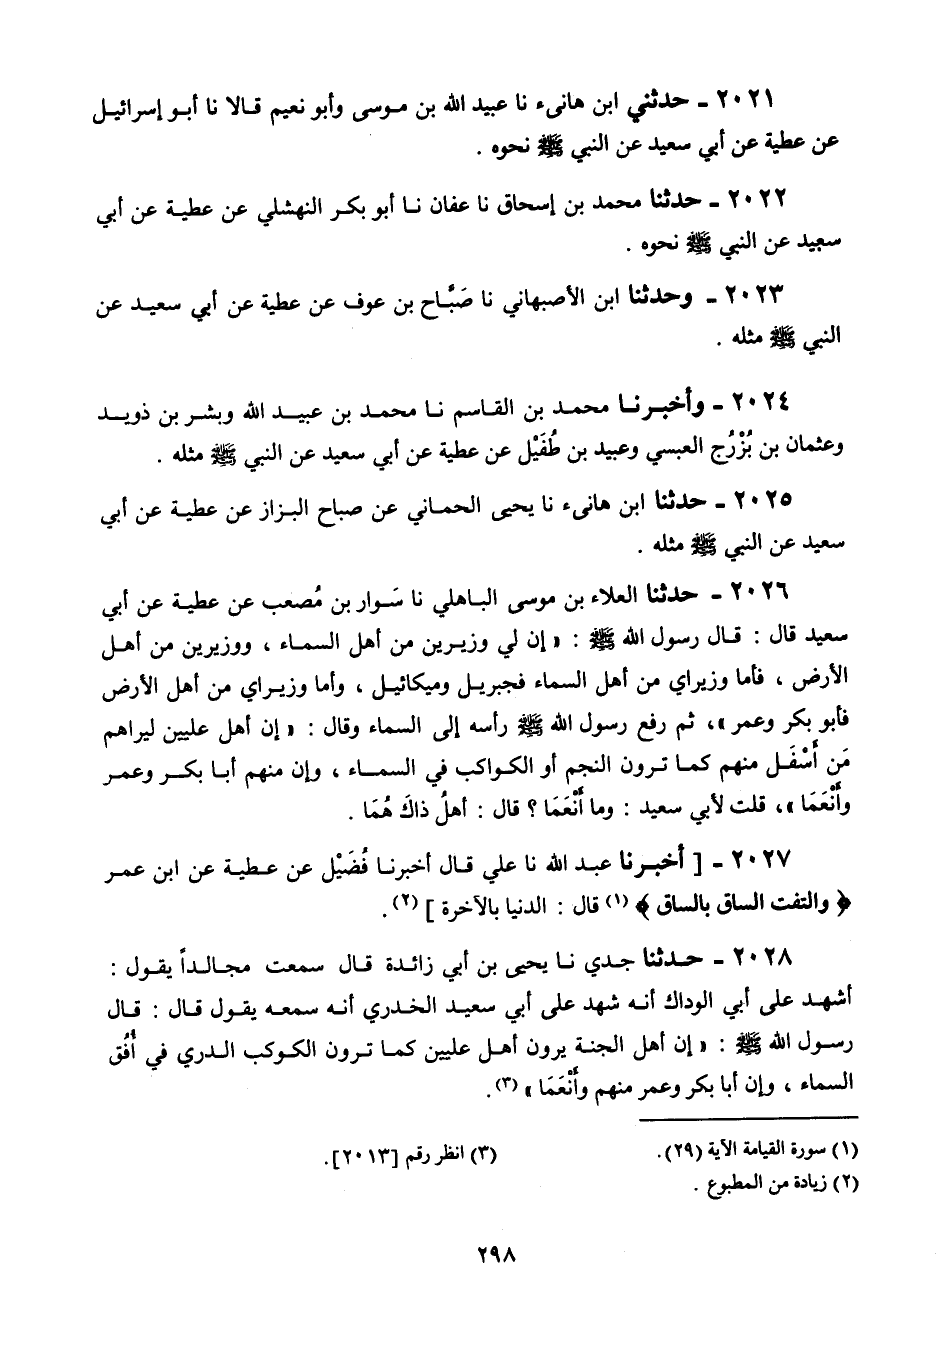 ٢٠٢١ - حدثني ابن هانىء نا عبيد الله بن موسى وأبو نعيم قالا نا أبو إسرائيل
عن عطية عن أبي سعيد عن النبي ﷺ نحوه .
٢٠٢٢ - حدثنا محمد بن إسحاق نا عفان نا أبو بكر النهشلي عن عطية عن أبي
سعيد عن النبي ﷺ نحوه .
٢٠٢٣ - وحدثنا ابن الأصبهاني نا صَبَّاح بن عوف عن عطية عن أبي سعيد عن
النبي ﷺ مثله .
٢٠٢٤ - وأخبرنا محمد بن القاسم نا محمد بن عبيد الله وبشر بن ذويد
وعثمان بن بُزْرُج العبسي وعبيد بن طُفَيْل عن عطية عن أبي سعيد عن النبي ﷺ مثله .
٢٠٢٥ - حدثنا ابن هانىء نا يحيى الحماني عن صباح البزاز عن عطية عن أبي
سعيد عن النبي ﷺ مثله .
٢٠٢٦ - حدثنا العلاء بن موسى الباهلي نا سَوار بن مُصعب عن عطية عن أبي
سعيد قال : قال رسول الله ﷺ : « إن لي وزيرين من أهل السماء ، ووزيرين من أهل
الأرض ، فأما وزيراي من أهل السماء فجبريل وميكائيل ، وأما وزيراي من أهل الأرض
فأبو بكر وعمر »، ثم رفع رسول الله ﷺ رأسه إلى السماء وقال : « إن أهل عليين ليراهم
مَن أَسْفَل منهم كما ترون النجم أو الكواكب في السماء ، وإن منهم أبا بكر وعمر
وأَنْعَمَا »، قلت لأبي سعيد : وما أَنْعَمَا ؟ قال : أهلُ ذاكَ هُمَا .
٢٠٢٧ - [ أخبرنا عبد الله نا علي قال أخبرنا فُضَيْل عن عطية عن ابن عمر
﴿ والتفت الساق بالساق ﴾ (١) قال : الدنيا بالآخرة ] (٢).
٢٠٢٨ - حدثنا جدي نا يحيى بن أبي زائدة قال سمعت مجالداً يقول :
أشهد على أبي الوداك أنه شهد على أبي سعيد الخدري أنه سمعه يقول قال : قال
رسول الله ﷺ : « إن أهل الجنة يرون أهل عليين كما ترون الكوكب الدري في أُفُق
السماء ، وإن أبا بكر وعمر منهم وأَنْعَمَا » (٣).
(١) سورة القيامة الآية (٢٩).
(٢) زيادة من المطبوع .
(٣) انظر رقم [٢٠١٣].
٢٩٨